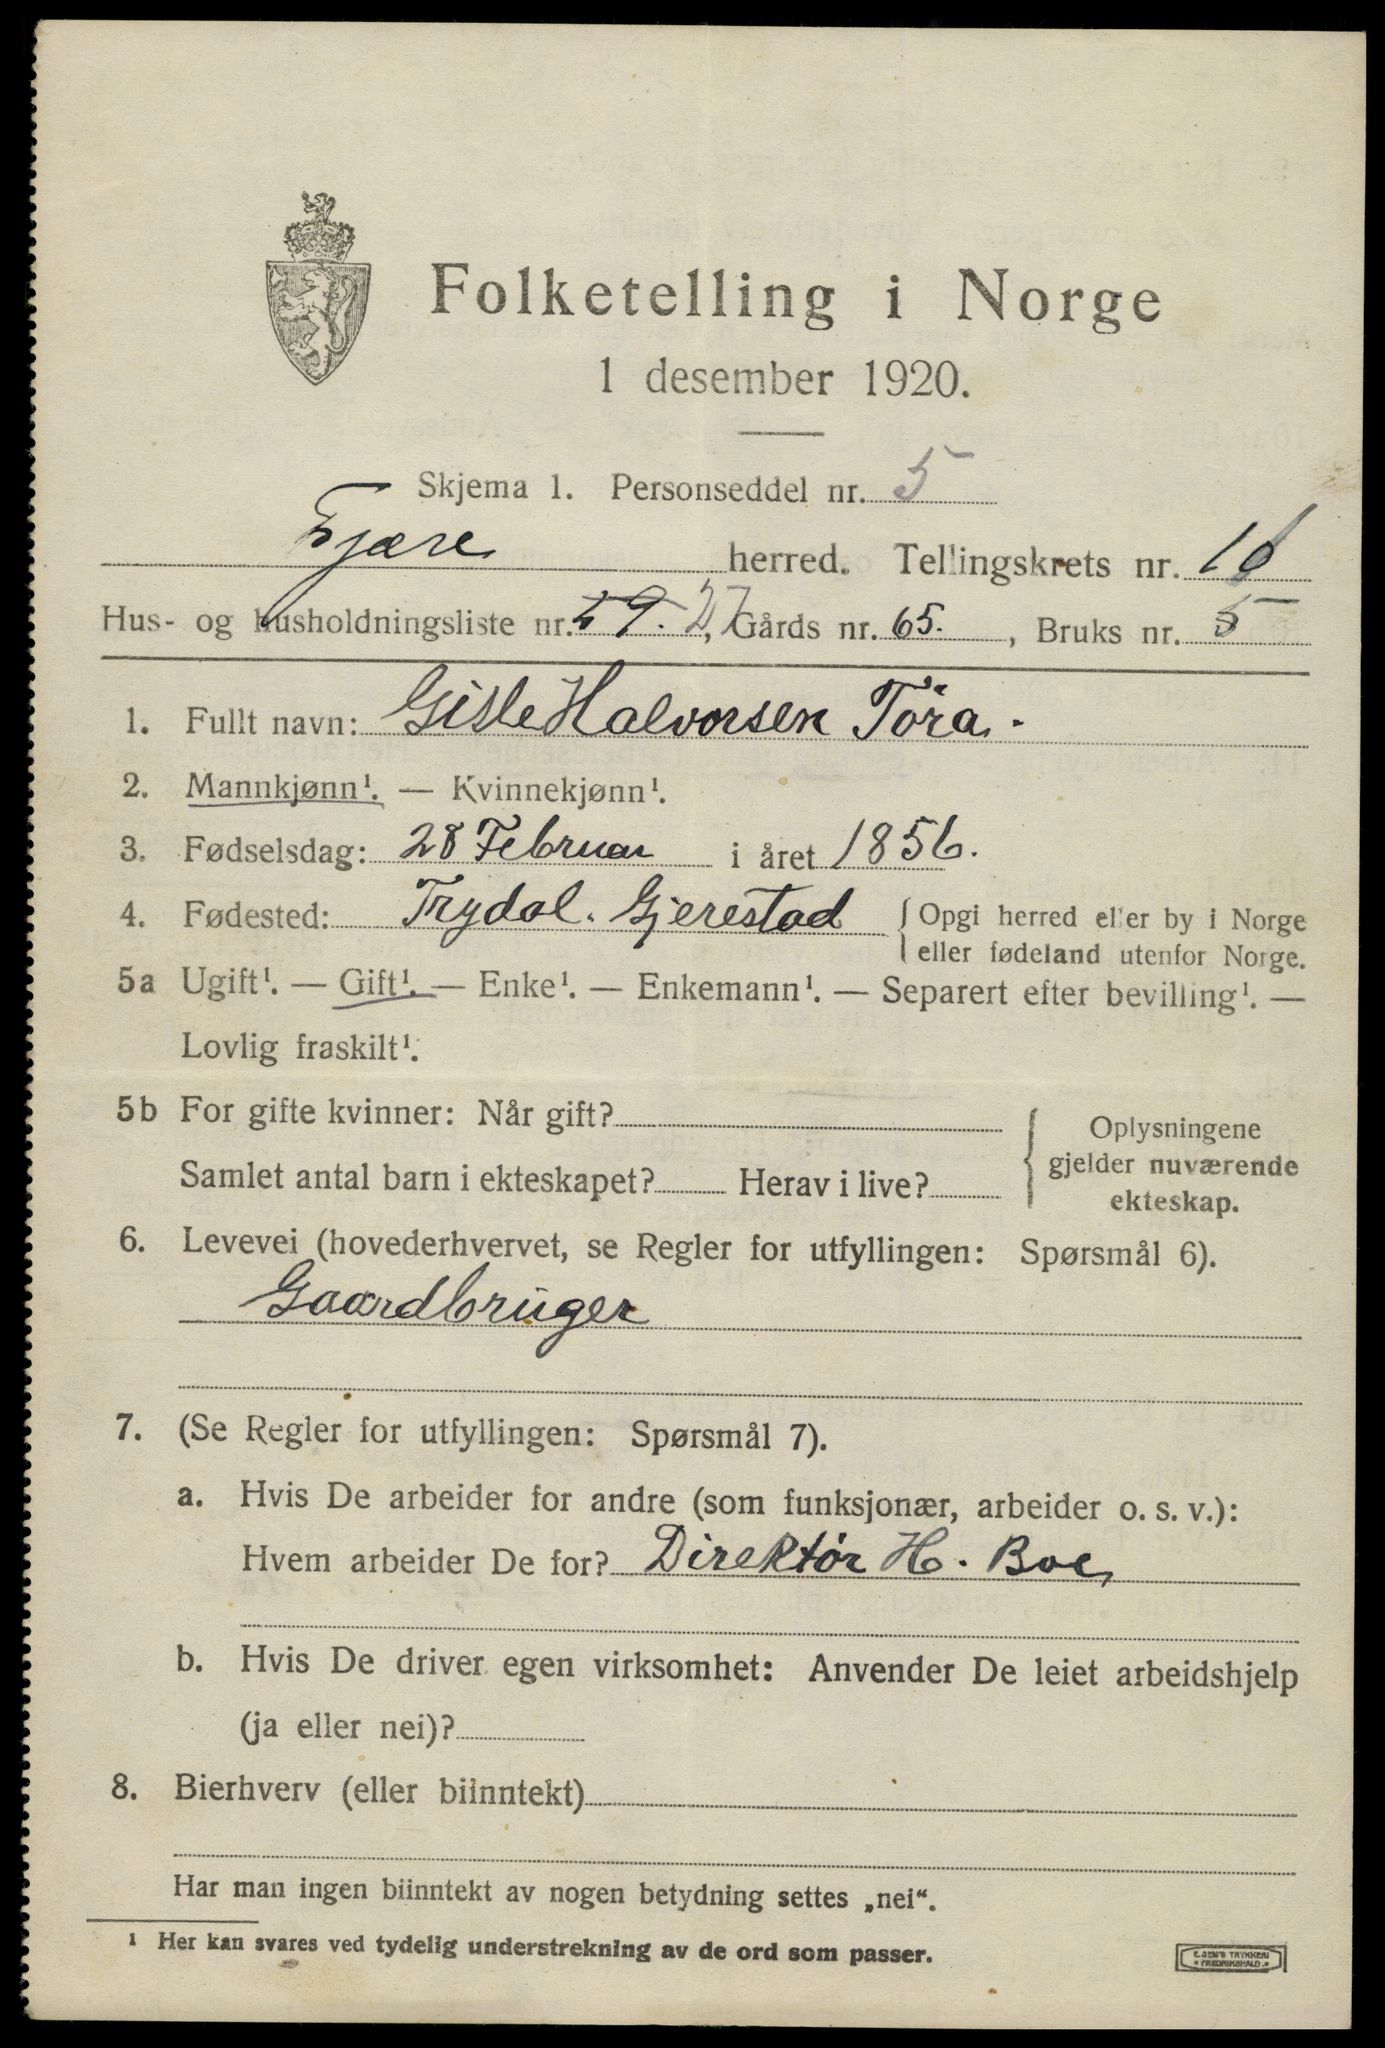 Folketelling i Norge
1 desember 1920.
Skjema 1. Personseddel nr. 5
Fjære herred. Tellingskrets nr. 16
Hus- og husholdningsliste nr. 29. 27, Gårds nr. 65., Bruks nr. 5
1. Fullt navn: Gisle Halvorsen Töra.
2. Mannkjønn¹. — Kvinnekjønn¹.
3. Fødselsdag: 28 Februar i året 1856.
4. Fødested: Trydal. Gjerestad { Opgi herred eller by i Norge
eller fødeland utenfor Norge.
5a Ugift¹. — Gift¹. — Enke¹. — Enkemann¹. — Separert efter bevilling¹. —
Lovlig fraskilt¹.
5b For gifte kvinner: Når gift?
Samlet antal barn i ekteskapet? Herav i live?
{ Oplysningene
gjelder nuværende
ekteskap.
6. Levevei (hovederhvervet, se Regler for utfyllingen: Spørsmål 6).
Gaardbruger
7. (Se Regler for utfyllingen: Spørsmål 7).
a. Hvis De arbeider for andre (som funksjonær, arbeider o. s. v.):
Hvem arbeider De for? Direktør H. Boe
b. Hvis De driver egen virksomhet: Anvender De leiet arbeidshjelp
(ja eller nei)?
8. Bierhverv (eller biinntekt)
Har man ingen biinntekt av nogen betydning settes „nei“.
¹ Her kan svares ved tydelig understrekning av de ord som passer.
E. SEM'S TRYKKERI
• FREDRIKSHALD •